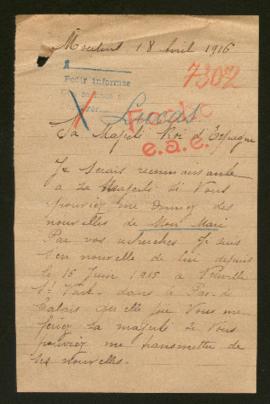 18 Avril 1916
7302
Pedir informes
Sa Majesté Roi d'Espagne
e.a.e.
Je serais reconnaissante
a sa Majesté si Vous
pouviez me donner des
nouvelles de Mon Mari
Par vos recherches Je suis
sans nouvelle de lui depuis
le 15 Juin 1915 a Neuville
St Vast dans le Pas de
Calais quelle joie Vous me
feriez sa majesté si Vous
pouviez me transmettre de
ses nouvelles.